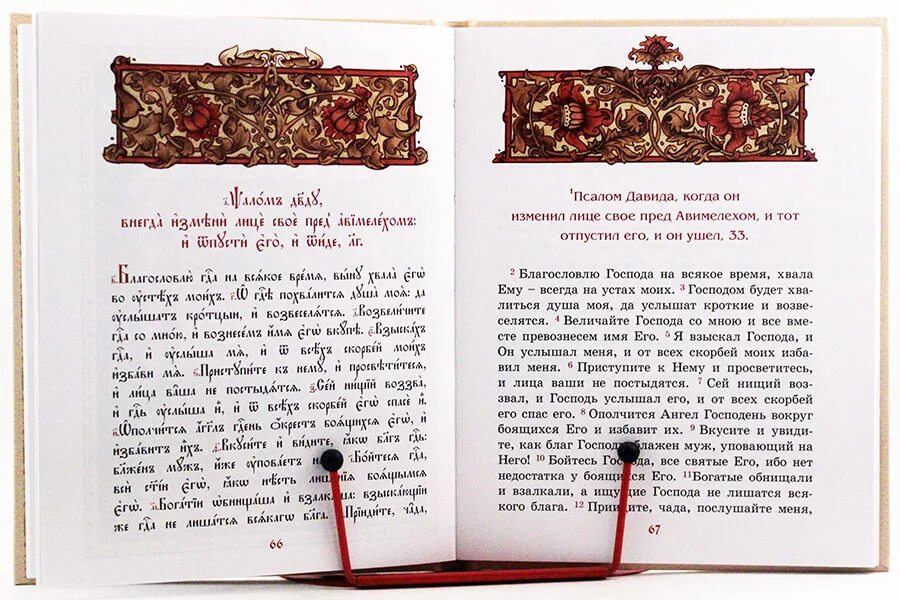 а҃. Ѱало́мъ дв҃дꙋ,
внегда̀ и҆змѣнѝ лицѐ своѐ пред̾ а҆вїмеле́хомъ:
и҆ ѿпꙋстѝ є҆го̀, и҆ ѿи́де, л҃г.
в҃. Благословлю̀ гдⷭ҇а на всѧ́кое вре́мѧ, вы́нꙋ хвала̀ є҆гѡ̀
во ᲂу҆стѣ́хъ мои́хъ. г҃. Ѡ҆ гдⷭ҇ѣ похва́литсѧ дꙋша̀ моѧ̀: да
ᲂу҆слы́шатъ кро́тцыи, и҆ возвеселѧ́тсѧ. д҃. Возвели́чите
гдⷭ҇а со мно́ю, и҆ вознесе́мъ и҆́мѧ є҆гѡ̀ вкꙋ́пѣ. є҃. Взыска́хъ
гдⷭ҇а, и҆ ᲂу҆слы́ша мѧ̀, и҆ ѿ всѣ́хъ скорбе́й мои́хъ
и҆зба́ви мѧ̀. ѕ҃. Пристꙋпи́те къ немꙋ̀, и҆ просвѣти́тесѧ,
и҆ ли́ца ва̑ша не постыдѧ́тсѧ. з҃. Се́й ни́щїй воззва̀,
и҆ гдⷭ҇ь ᲂу҆слы́ша и҆̀, и҆ ѿ всѣ́хъ скорбе́й є҆гѡ̀ спасѐ и҆̀.
и҃. Ѡ҆полчи́тсѧ а҆́гг҃лъ гдⷭ҇ень ѡ҆́крестъ боѧ́щихсѧ є҆гѡ̀, и҆
и҆зба́витъ и҆̀хъ. ѳ҃. Вкꙋси́те и҆ ви́дите, ꙗ҆́кѡ бл҃гъ гдⷭ҇ь:
бл҃же́нъ мꙋ́жъ, и҆́же ᲂу҆пова́етъ на́нь. і҃. Бо́йтесѧ гдⷭ҇а,
всѝ ст҃і́и є҆гѡ̀, ꙗ҆́кѡ нѣ́сть лише́нїѧ боѧ́щымсѧ
є҆гѡ̀. а҃і. Бога́тїи ѡ҆бнища́ша и҆ взалка́ша: взыска́ющїи
же гдⷭ҇а не лиша́тсѧ всѧ́кагѡ бл҃га. Прїиди́те, ча̑да,
66
¹Псалом Давида, когда он
изменил лице свое пред Авимелехом, и тот
отпустил его, и он ушел, 33.
² Благословлю Господа на всякое время, хвала
Ему – всегда на устах моих. ³ Господом будет хва-
литься душа моя, да услышат кроткие и возве-
селятся. ⁴ Величайте Господа со мною и все вме-
сте превознесем имя Его. ⁵ Я взыскал Господа, и
Он услышал меня, и от всех скорбей моих изба-
вил меня. ⁶ Приступите к Нему и просветитесь,
и лица ваши не постыдятся. ⁷ Сей нищий воз-
звал, и Господь услышал его, и от всех скорбей
его спас его. ⁸ Ополчится Ангел Господень вокруг
боящихся Его и избавит их. ⁹ Вкусите и увиди-
те, как благ Господь! Блажен муж, уповающий на
Него! ¹⁰ Бойтесь Господа, все святые Его, ибо нет
недостатка у боящихся Его. ¹¹Богатые обнищали
и взалкали, а ищущие Господа не лишатся вся-
кого блага. ¹² Приидите, чада, послушайте меня,
67